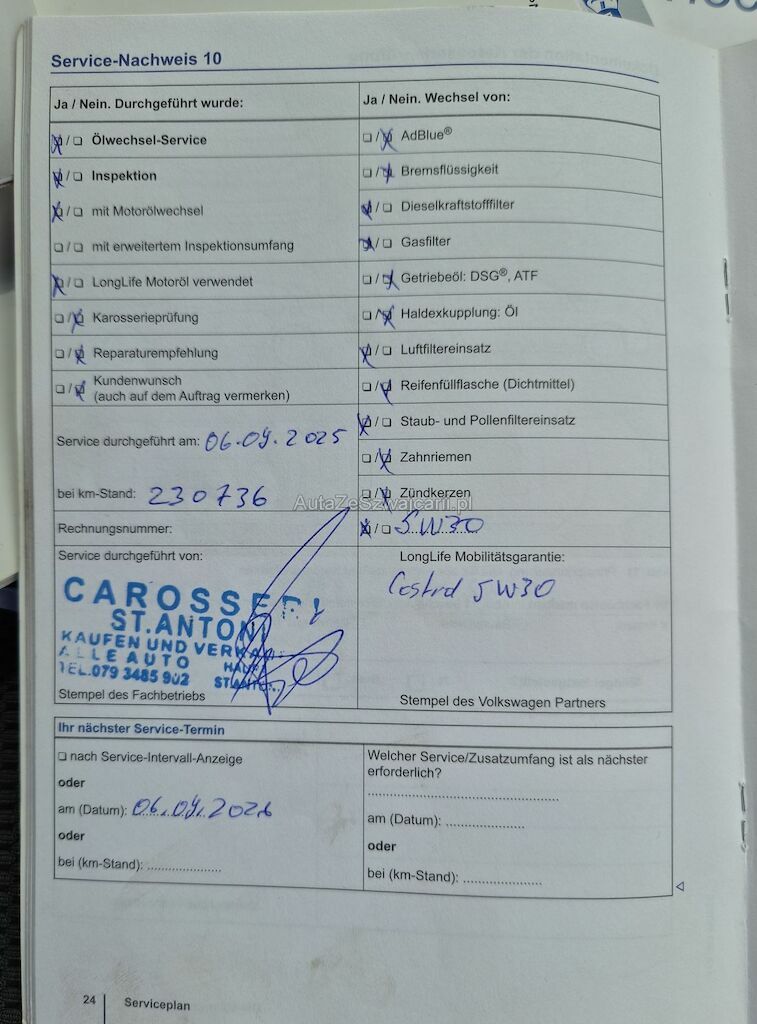 Service-Nachweis 10
Ja / Nein. Durchgeführt wurde:
Ölwechsel-Service
Inspektion
mit Motorölwechsel
mit erweitertem Inspektionsumfang
LongLife Motoröl verwendet
Karosserieprüfung
Reparaturempfehlung
Kundenwunsch
(auch auf dem Auftrag vermerken)
Service durchgeführt am: 06.09.2025
bei km-Stand: 230736
Rechnungsnummer:
Service durchgeführt von:
CAROSSERI
ST.ANTONI
KAUFEN UND VERKAUF
ALLE AUTO
TEL.079 3485 902
Stempel des Fachbetriebs
Ja / Nein. Wechsel von:
AdBlue®
Bremsflüssigkeit
Dieselkraftstofffilter
Gasfilter
Getriebeöl: DSG®, ATF
Haldexkupplung: Öl
Luftfiltereinsatz
Reifenfüllflasche (Dichtmittel)
Staub- und Pollenfiltereinsatz
Zahnriemen
Zündkerzen
5W30
LongLife Mobilitätsgarantie:
Castrol 5W30
Stempel des Volkswagen Partners
AutaZeSzwajcarii.pl
Ihr nächster Service-Termin
nach Service-Intervall-Anzeige
oder
am (Datum): 06.09.2026
oder
bei (km-Stand):
Welcher Service/Zusatzumfang ist als nächster
erforderlich?
am (Datum):
oder
bei (km-Stand):
24 Serviceplan